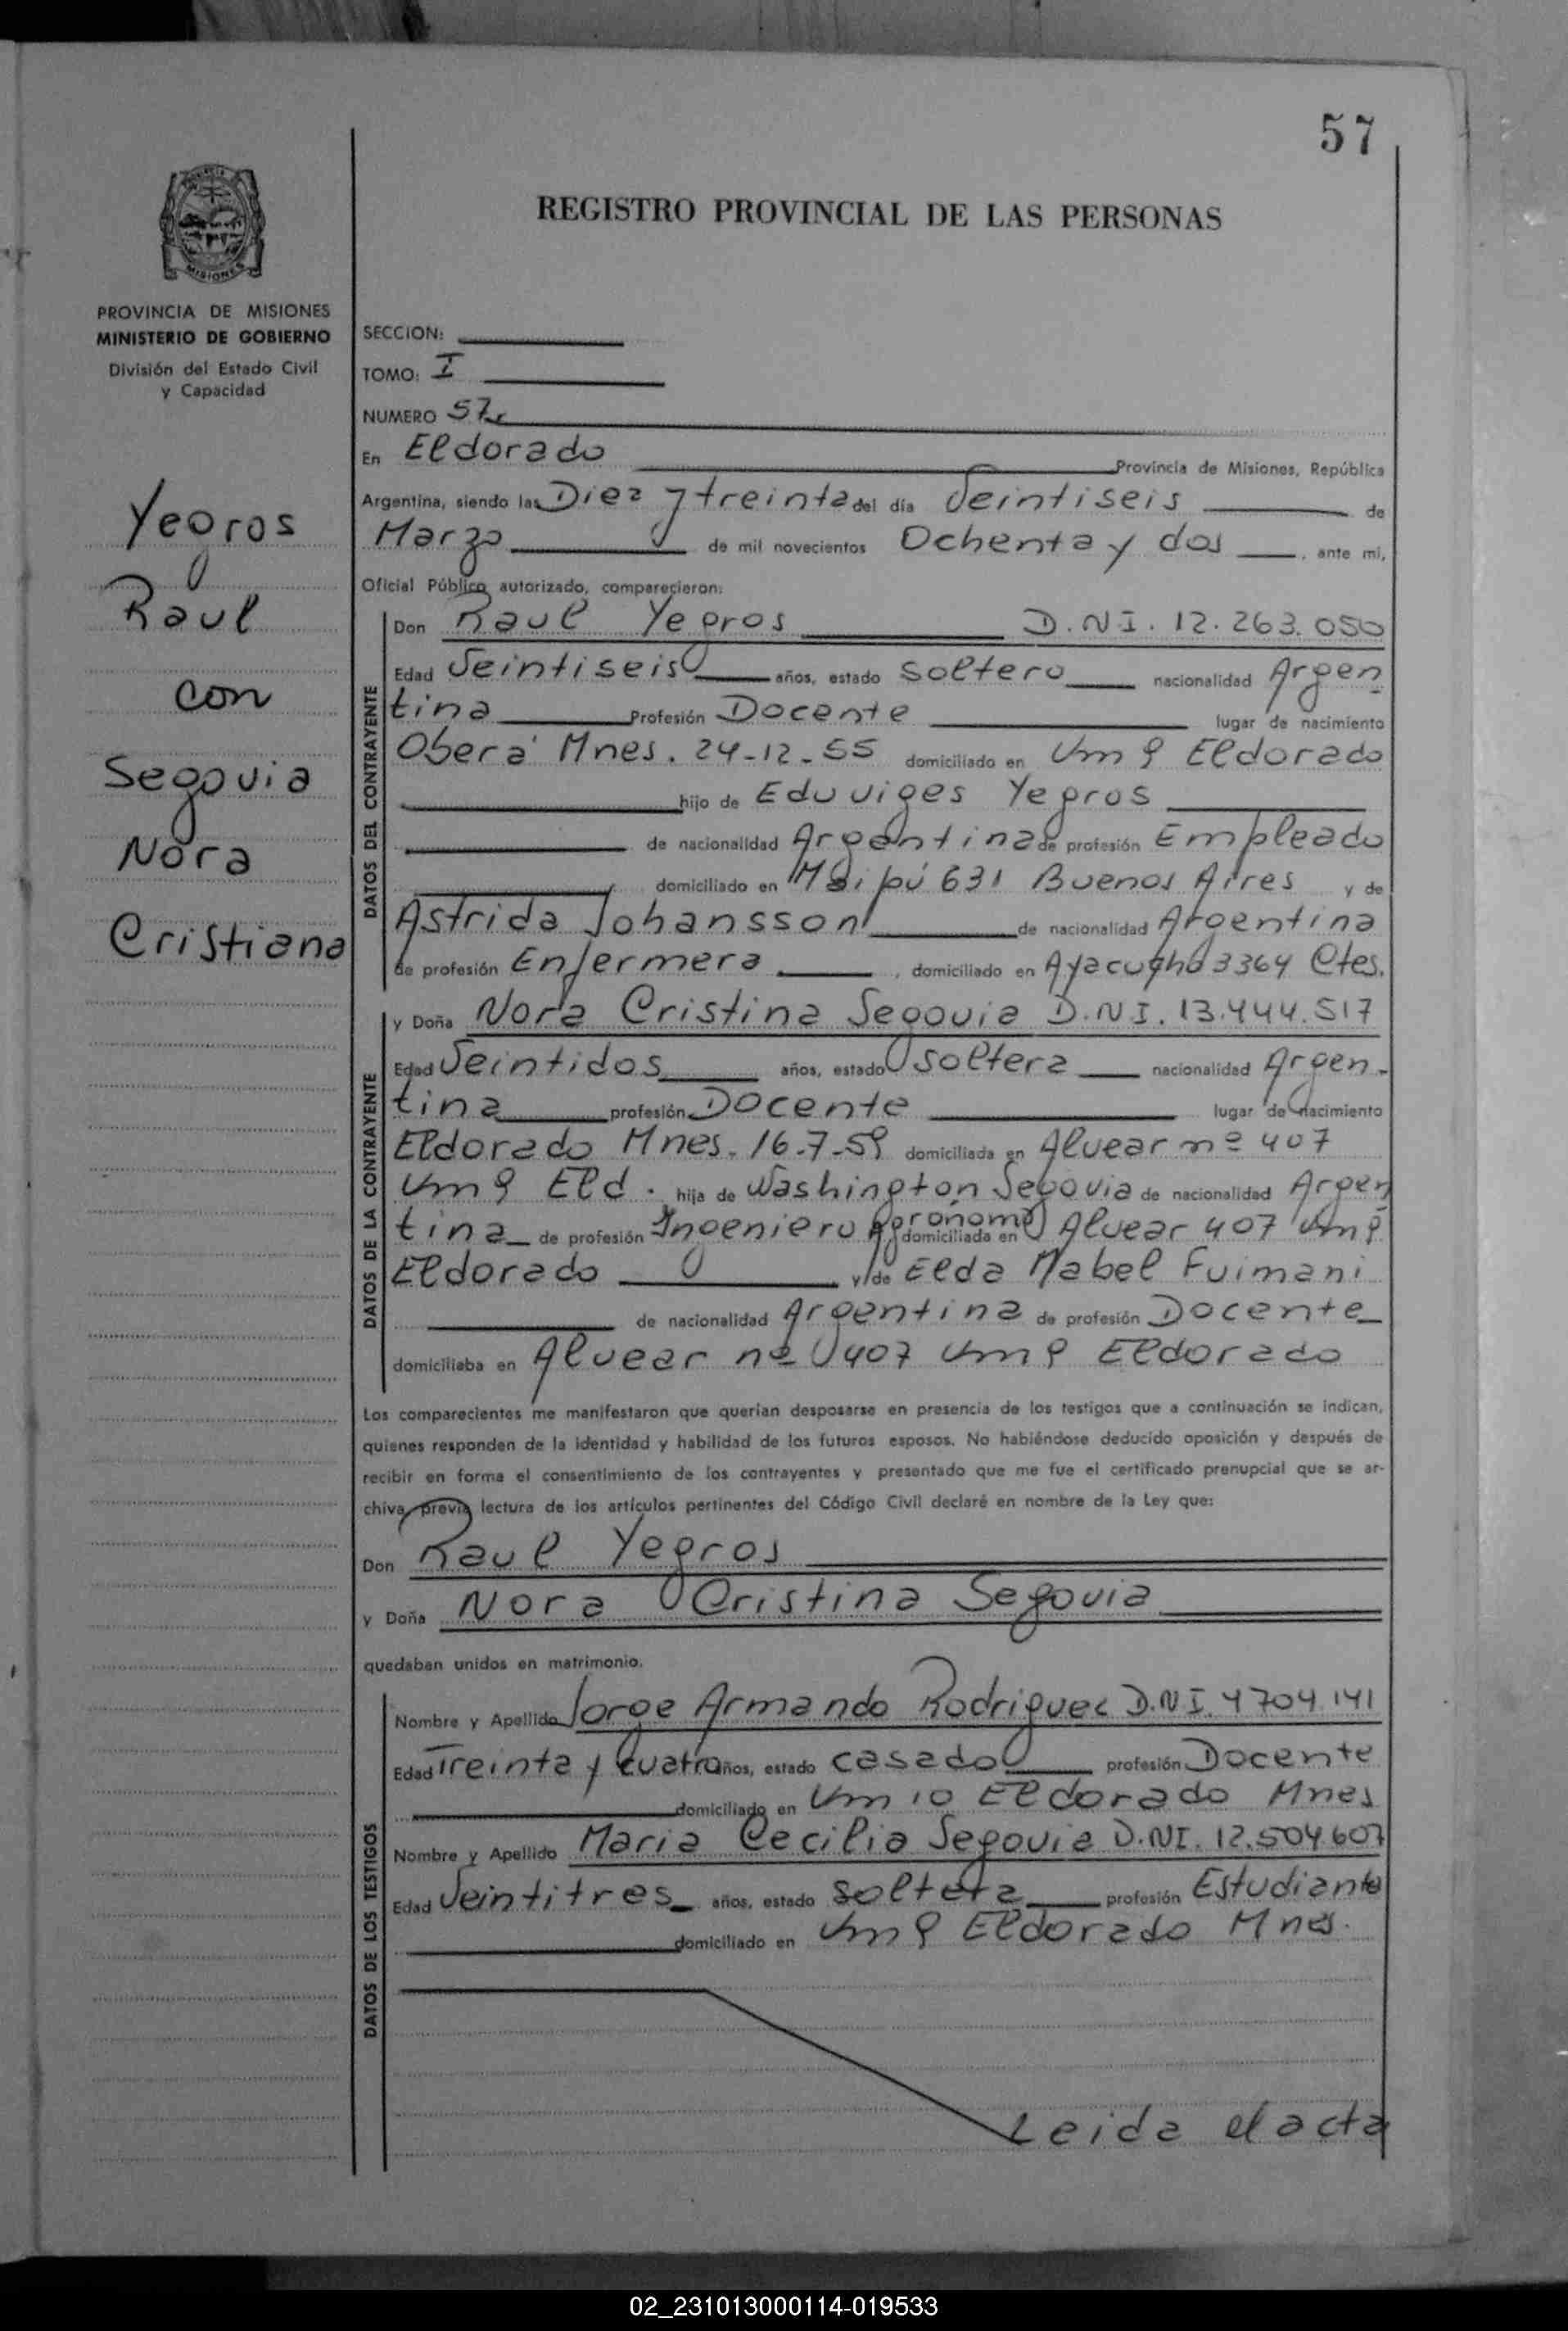 57
REGISTRO PROVINCIAL DE LAS PERSONAS
MISIONES
PROVINCIA DE MISIONES
MINISTERIO DE GOBIERNO
División del Estado Civil
y Capacidad
Yegros
Raul
con
Segovia
Nora
Cristiana
SECCION:
TOMO: I
NUMERO 57
En Eldorado Provincia de Misiones, República
Argentina, siendo las Diez y treinta del día Veintiseis de
Marzo de mil novecientos Ochenta y dos, ante mí,
Oficial Público autorizado, comparecieron:
DATOS DEL CONTRAYENTE
Don Raul Yegros D.N.I. 12.263.050
Edad Veintiseis años, estado soltero nacionalidad Argen
tina Profesión Docente lugar de nacimiento
Oberá Mnes. 24-12-55 domiciliado en Km 9 Eldorado
hijo de Eduviges Yegros
de nacionalidad Argentina de profesión Empleado
domiciliado en Maipú 631 Buenos Aires y de
Astrida Johansson de nacionalidad Argentina
de profesión Enfermera, domiciliado en Ayacucho 3364 Ctes.
DATOS DE LA CONTRAYENTE
y Doña Nora Cristina Segovia D.N.I. 13.444.517
Edad Veintidos años, estado soltera nacionalidad Argen-
tina profesión Docente lugar de nacimiento
Eldorado Mnes. 16-7-59 domiciliada en Alvear nº 407
Km 9 Eld. hija de Washington Segovia de nacionalidad Argen
tina de profesión Ingeniero Agronomo domiciliada en Alvear 407 Km 9
Eldorado y de Elda Mabel Fuimani
de nacionalidad Argentina de profesión Docente
domiciliaba en Alvear nº 407 Km 9 Eldorado
Los comparecientes me manifestaron que querían desposarse en presencia de los testigos que a continuación se indican,
quienes responden de la identidad y habilidad de los futuros esposos. No habiéndose deducido oposición y después de
recibir en forma el consentimiento de los contrayentes y presentado que me fue el certificado prenupcial que se ar-
chiva, previa lectura de los artículos pertinentes del Código Civil declaré en nombre de la Ley que:
Don Raul Yegros
y Doña Nora Cristina Segovia
quedaban unidos en matrimonio.
DATOS DE LOS TESTIGOS
Nombre y Apellido Jorge Armando Rodriguez D.N.I. 4704.141
Edad Treinta y cuatro años, estado casado profesión Docente
domiciliado en Km 10 Eldorado Mnes
Nombre y Apellido Maria Cecilia Segovia D.NI. 12.504.607
Edad Veintitres años, estado soltera profesión Estudiante
domiciliado en Km 9 Eldorado Mnes.
Leida el acta
02_231013000114-019533